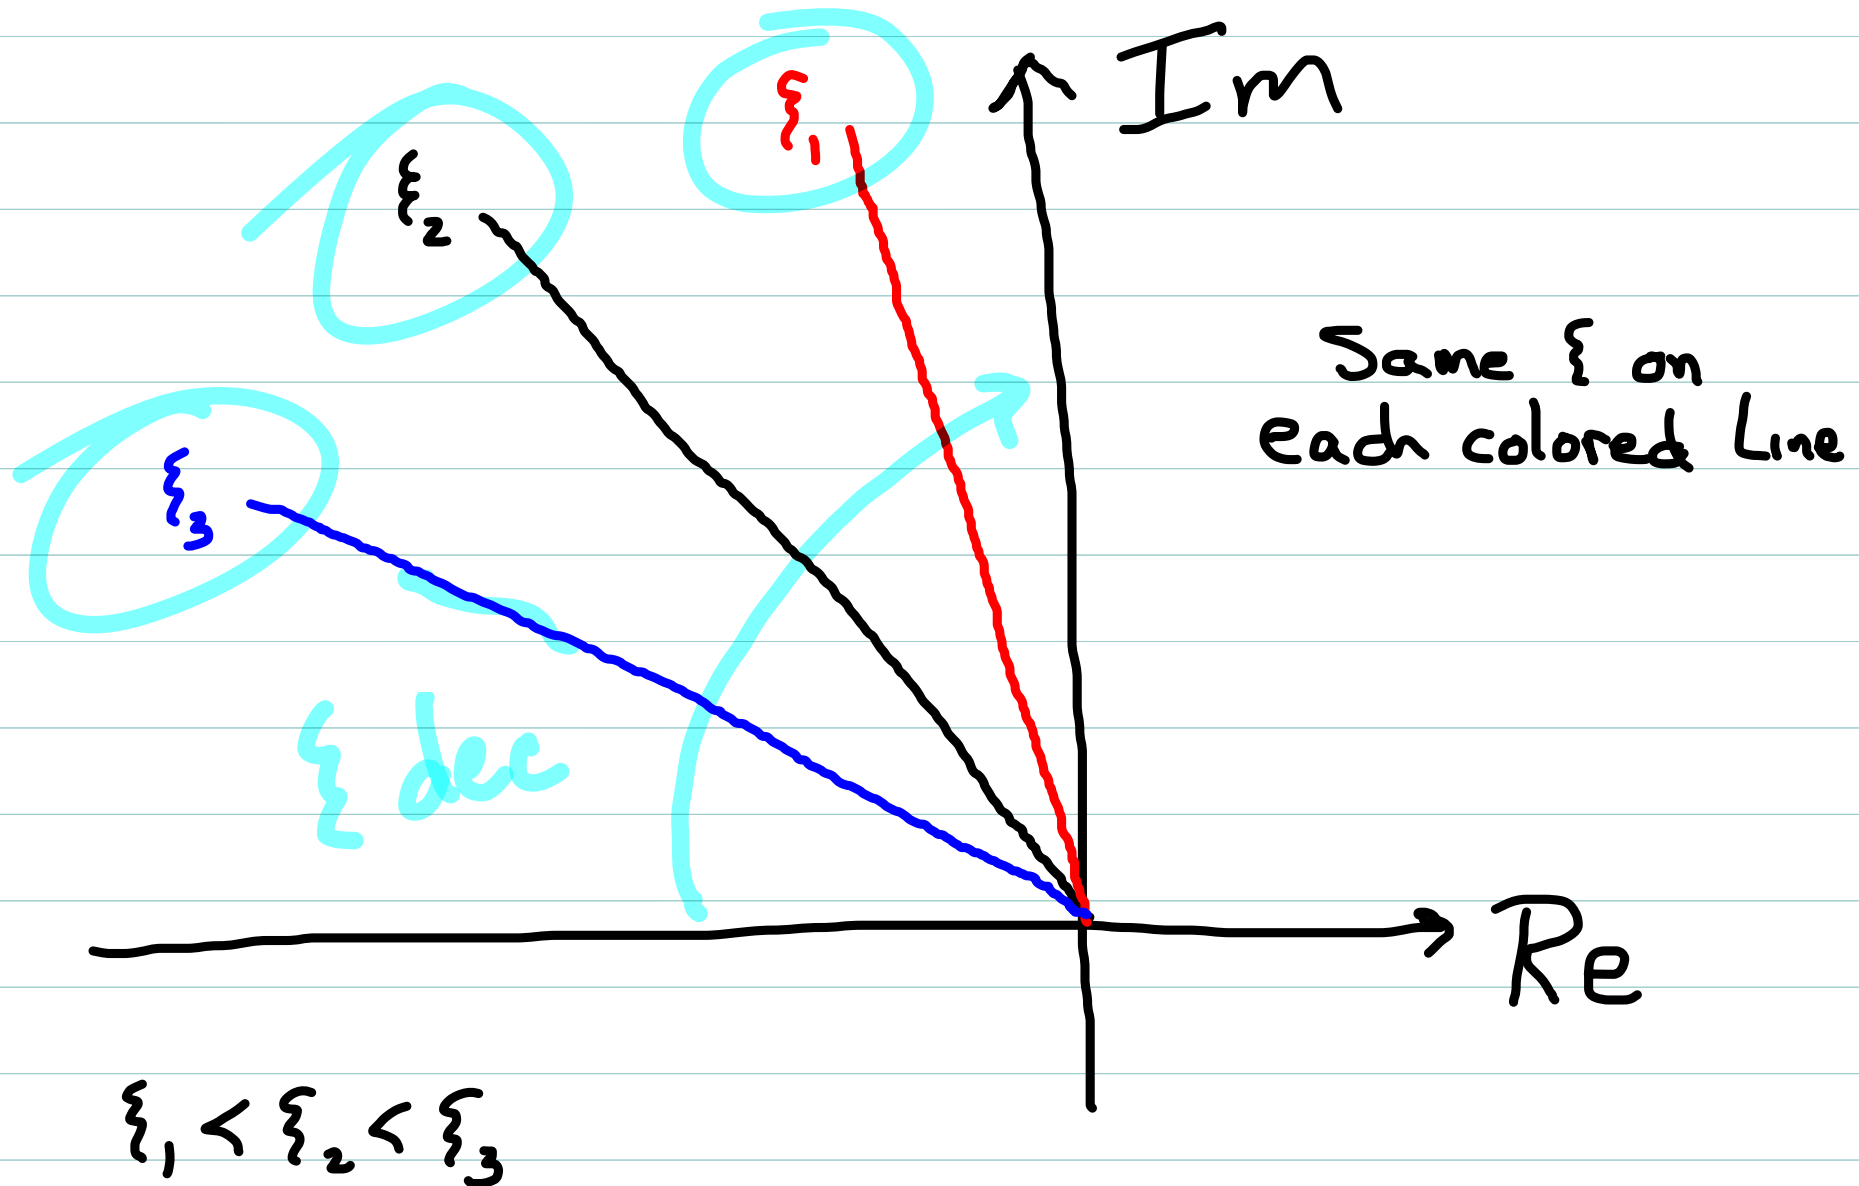 Im
ξ₁
ξ₂
Same ξ on
each colored Line
ξ₃
ξ dec
Re
ξ₁ < ξ₂ < ξ₃